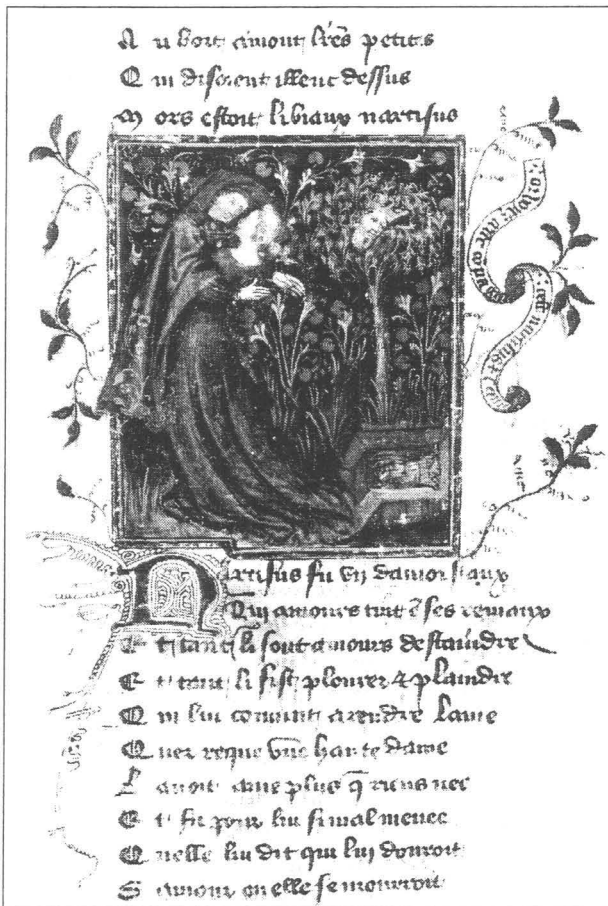 A u bort amont lrēs petites
Q ui disoient illeuc dessus
M ors estoit li biaux nartisus
N artisus fu vn damoisiaux
Qui amours tint ē ses remaux
E t tant li sout amours destraindre
E t tant li fist plourer & plaindre
Q ui lui conuint a rendre lame
Q uer reque vne haute dame
L auoit ame plus q̄ riens nee
E t fu pour lui si mal menee
Q uelle lui dit qui luy donroit
S amour ou elle se mouroit